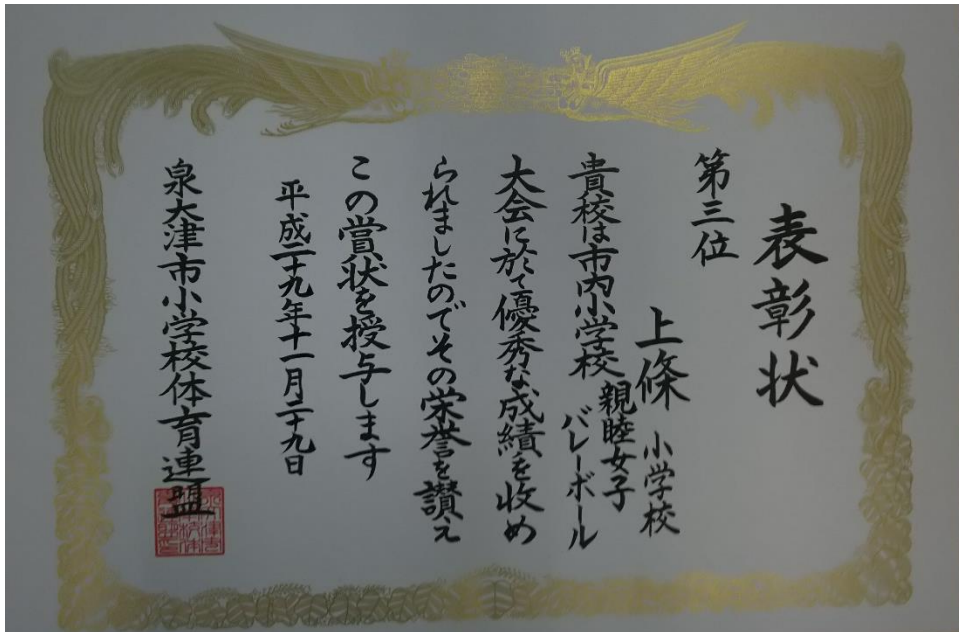 表彰状
第三位
上條 小学校
貴校は市内小学校親睦女子バレーボール
大会に於て優秀な成績を収め
られましたのでその栄誉を讃え
この賞状を授与します
平成二十九年十一月二十九日
泉大津市小学校体育連盟